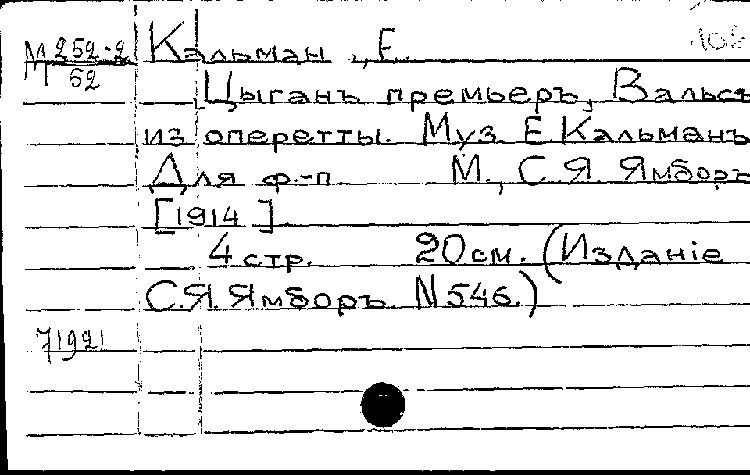 М 252-2 Кальман, Е.
52
Цыганъ премьеръ, Вальсъ
из оперетты. Муз. Е Кальманъ
Для ф.-п М., С.Я. Ямборъ
[1914]
4 стр. 20 см. (Изданіе
С.Я. Ямборъ. N 546.)
71921